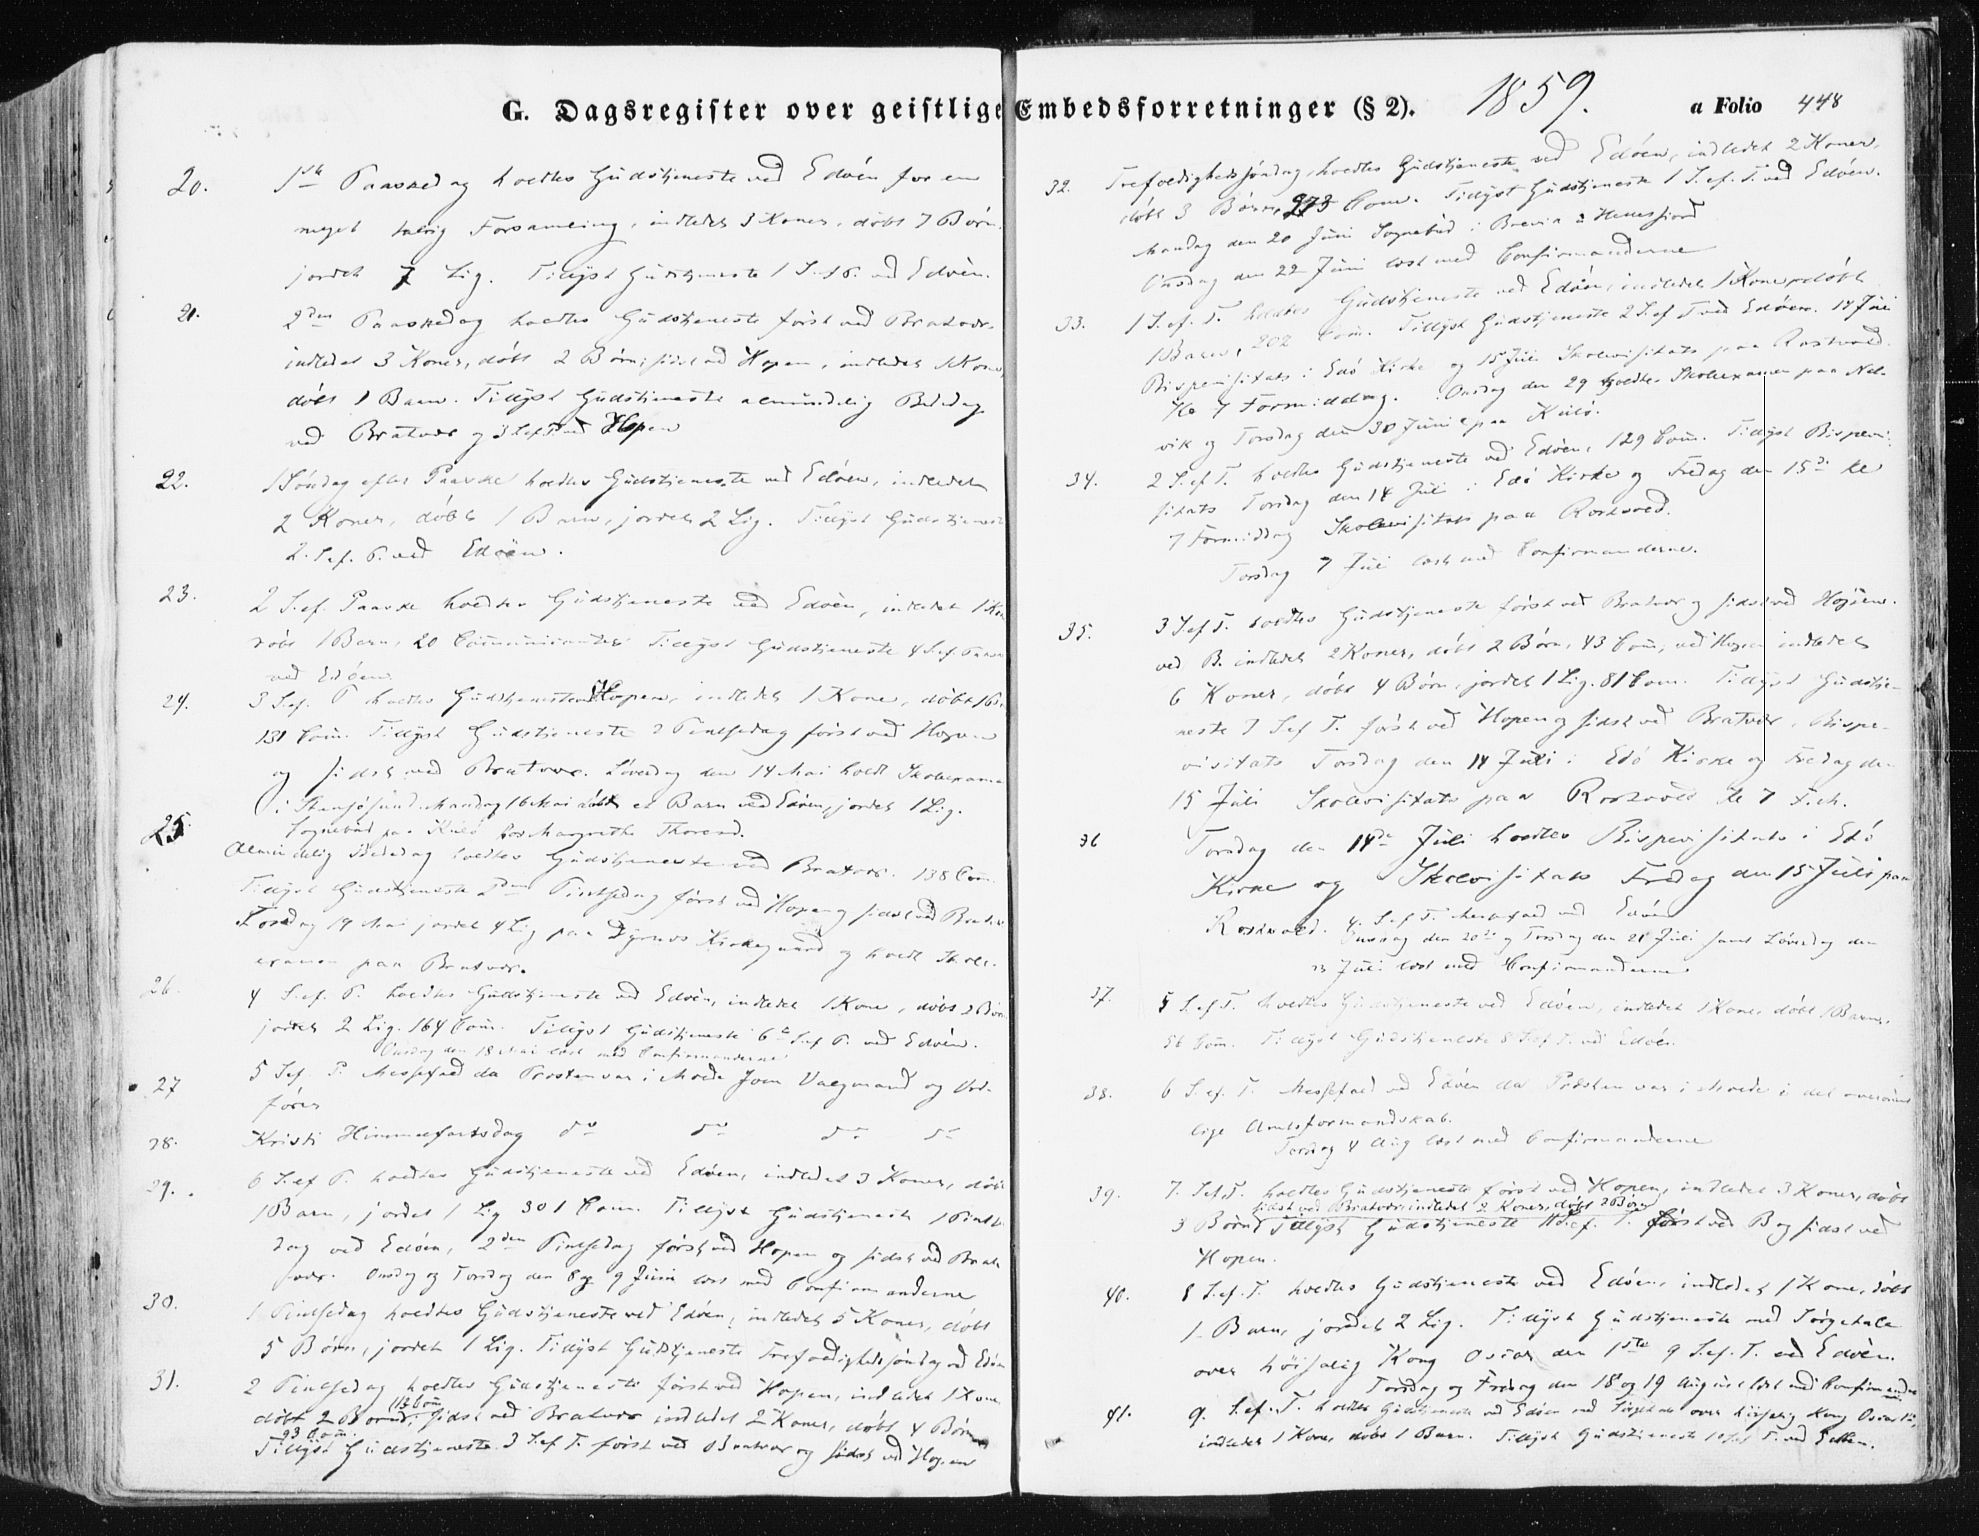 G. Dagsregister over geistlige Embedsforretninger (§ 2). 1859. a Folio 448
20. 1ste Paaskedag holdtes Gudstjeneste ved Edöen for en
meget talrig Forsamling, indledet 3 Koner, döbt 7 Börn
jordet 7 Lig. Tillyst Gudstjeneste 1 S. ef P. ved Edöen.
21. 2den Paaskedag holdtes Gudstjeneste först ved Bratvær
indledet 3 Koner, döbt 2 Börn; sidst ved Hopen, indledet 1 Kone,
döbt 1 Barn. Tillyst Gudstjeneste almindelig Bededag
ved Bratvær og 3 S ef P. ved Hopen
22. 1 Söndag efter Paaske holdtes Gudstjeneste ved Edöen, indledet
2 Koner, döbt 1 Barn, jordet 2 Lig. Tillyst Gudstjeneste
2. S. ef. P. ved Edöen.
23. 2 S. ef. Paaske holdtes Gudstjeneste ved Edöen, indledet 1 Kone
döbt 1 Barn, 20 Communicanter Tillyst Gudstjeneste 4 S. ef. Paaske
ved Edöen
24. 3 S. ef. P holdtes Gudstjeneste ved Hopen, indledet 1 Kone, döbt 1 B.
131 Com. Tillyst Gudstjeneste 2 Pintsedag först ved Hopen
og sidst ved Bratvær. Löverdag den 14 Mai holdt Skoleexamen
i Mandag 16 Mai döbt et Barn ved Edöen, jordet 1 Lig.
Sognebud paa Kulö hos Margrethe Thoresd.
25 Almindelig Bededag holdtes Gudstjeneste ved Bratvær. 138 Com.
Tillyst Gudstjeneste 2den Pintsedag först ved Hopen og sidst ved Bratvær
Torsdag 19 Mai jordet 4 Lig paa Dyrnes Kirkegaard og holdt Skole-
examen paa Bratvær.
26. 4 S. ef. P. holdtes Gudstjeneste ved Edöen, indledet 1 Kone, döbt 2 Börn
jordet 2 Lig. 164 Com. Tillyst Gudstjeneste 6te S. ef P. ved Edöen.
Onsdag den 18 Mai læst med Confirmanderne
27 5 S ef. P. Messefald da Præsten var i Möde som Valgmand og Ord-
förer
28. Kristi Himmelfartsdag do do do do
29. 6 S. ef P. holdtes Gudstjeneste ved Edöen, indledet 3 Koner, döbt
1 Barn, jordet 1 Lig 301 Com. Tillyst Gudstjeneste 1 Pintse-
dag ved Edöen, 2den Pintsedag först ved Hopen og sidst ved Brat-
vær. Onsdag og Torsdag den 8 og 9 Juni læst med Confirmanderne
30. 1 Pintsedag holdtes Gudstjeneste ved Edöen, indledet 5 Koner, döbt
5 Börn, jordet 1 Lig. Tillyst Gudstjeneste Trefoldighedssöndag ved Edöen
31. 2 Pintsedag holdtes Gudstjeneste först ved Hopen, indledet 1 Kone,
113 Com
döbt 2 Börn, sidst ved Bratvær indledet 2 Koner, döbt 4 Börn
93 Com.
Tillyst Gudstjeneste 3 S. ef T. först ved Bratvær og sidst ved Hopen
32. Trefoldighedssöndag holdtes Gudstjeneste ved Edöen, indledet 2 Koner,
döbt 3 Börn, 273 Com. Tillyst Gudstjeneste 1 S. ef. T. ved Edöen.
Mandag den 20 Juni Sognebud i
Onsdag den 22 Juni læst med Confirmanderne
33. 1 S. ef. T. holdtes Gudstjeneste ved Edöen, indledet 1 Kone, döbt
1 Barn, 202 Com. Tillyst Gudstjeneste 2 S. ef T ved Edöen. 14 Juli
Bispevisitats i Edö Kirke og 15 Juli Skolevisitats paa Rostvold
Kl 7 Formiddag. Onsdag den 29 holdtes Skoleexamen paa Nel-
vik og Torsdag den 30 Juni paa Kulö.
34. 2 S. ef T. holdtes Gudstjeneste ved Edöen, 129 Com. Tillyst Bispevi-
sitats Torsdag den 14 Juli i Edö Kirke og Fredag den 15de Kl
7 Formiddag Skolevisitats paa Rostvold.
Torsdag 7 Juli læst med Confirmanderne.
35. 3 S ef T. holdtes Gudstjeneste först ved Bratvær og sidst ved Hopen.
ved B. indledet 2 Koner, döbt 2 Börn, 43 Com, ved Hopen indledet
6 Koner, döbt 4 Börn, jordet 1 Lig. 81 Com. Tillyst Gudstje-
neste 7 S ef T. först ved Hopen og sidst ved Bratvær. Bispe-
visitats Torsdag den 14 Juli i Edö Kirke og Fredag den
15 Juli Skolevisitats paa Rostvold Kl 7 F.
36 Torsdag den 14de Juli holdtes Bispevisitats i Edö
Kirke og Skolevisitats Fredag den 15 Juli paa
Rostvold. 4. S. ef T. Messefald ved Edöen
Onsdag den 20de og Torsdag den 21 Juli samt Löverdag den
23 Juli læst med Confirmanderne
37. 5 S. ef T. holdtes Gudstjeneste ved Edöen, indledet 1 Kone, döbt 1 Barn,
56 Com. Tillyst Gudstjeneste 8 S. ef T. ved Edöen.
38. 6 S. ef. T. Messefald ved Edöen da Præsten var i Möde i det
lige Amtsformandskab.
Torsdag 4 Aug læst med Confirmanderne
39. 7. S. ef T. holdtes Gudstjeneste först ved Hopen, indledet 3 Koner, döbt
sidst ved Bratvær, indledet 2 Koner, döbt 2 Börn
3 Börn Tillyst Gudstjeneste 11 S. ef. T. först ved B og sidst ved
Hopen.
40. 8 S. ef. T. holdtes Gudstjeneste ved Edöen, indledet 1 Kone, döbt
1 Barn, jordet 2 Lig. Tillyst Gudstjeneste med Sörgetale
over höisalig Kong Oscar den 1ste 9 S. ef. T. ved Edöen.
Torsdag og Fredag den 18 og 19 August læst med Confirmanderne
41. 9. S. ef. T. holdtes Gudstjeneste ved Edöen med Sörgetale over höisalig Kong Oscar 1ste,
indledet 1 Kone, döbt 1 Barn. Tillyst Gudstjeneste 10 S ef T. ved Edöen.